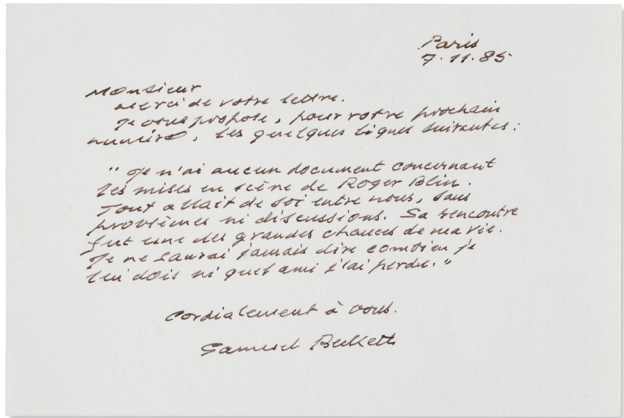 Paris
7.11.85
Monsieur
Merci de votre lettre.
Je vous propose, pour votre prochain
numéro, les quelques lignes suivantes :
" Je n'ai aucun document concernant
les mises en scène de Roger Blin.
Tout allait de soi entre nous, sans
problèmes ni discussions. Sa rencontre
fut une des grandes chances de ma vie.
Je ne saurai jamais dire combien je
lui dois ni quel ami j'ai perdu. "
Cordialement à vous.
Samuel Beckett